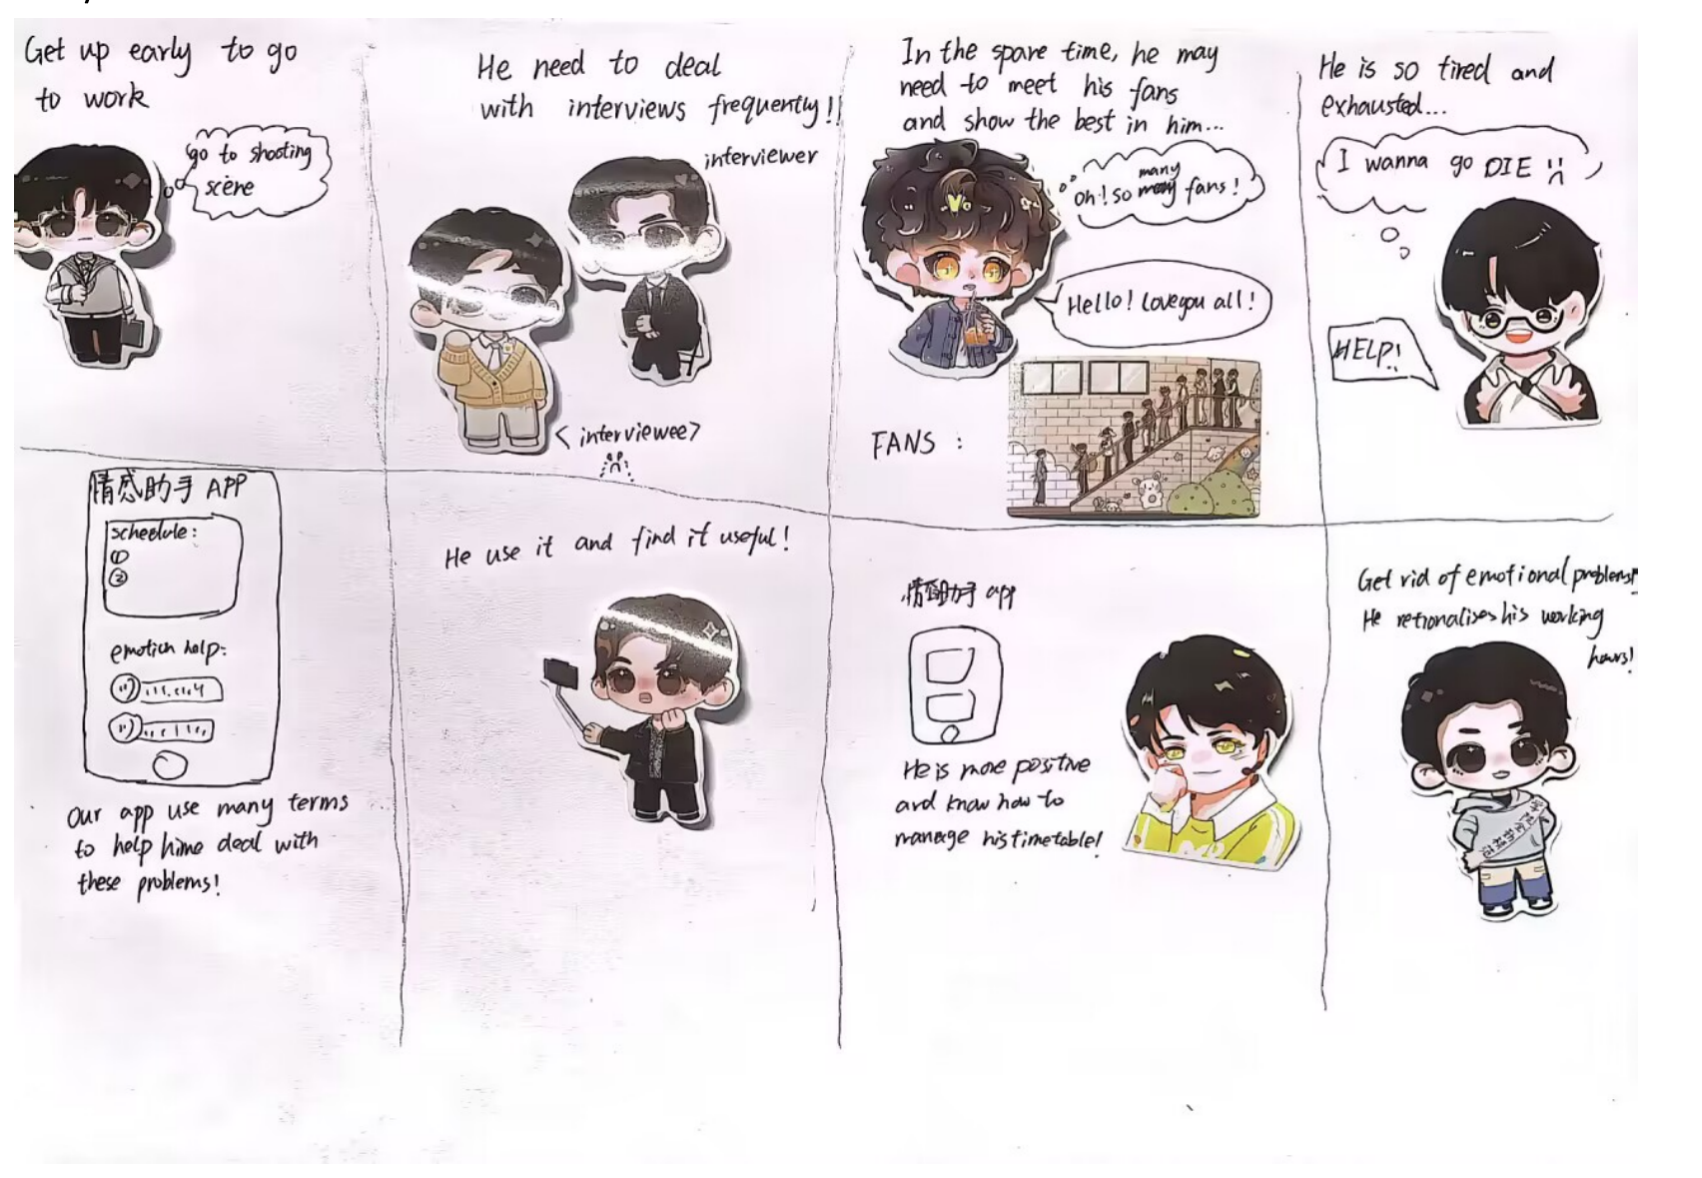 Get up early to go
to work
go to shooting
scene
He need to deal
with interviews frequently!!
interviewer
<interviewee>
In the spare time, he may
need to meet his fans
and show the best in him...
oh! so many fans!
Hello! love you all!
FANS :
He is so tired and
exhausted...
I wanna go DIE
HELP!
情感助手 APP
schedule:
①
②
emotion help:
Our app use many terms
to help hime deal with
these problems!
He use it and find it useful!
情感助手 app
He is more positive
and know how to
manage his timetable!
Get rid of emotional problems!
He retionalises his working
hours!